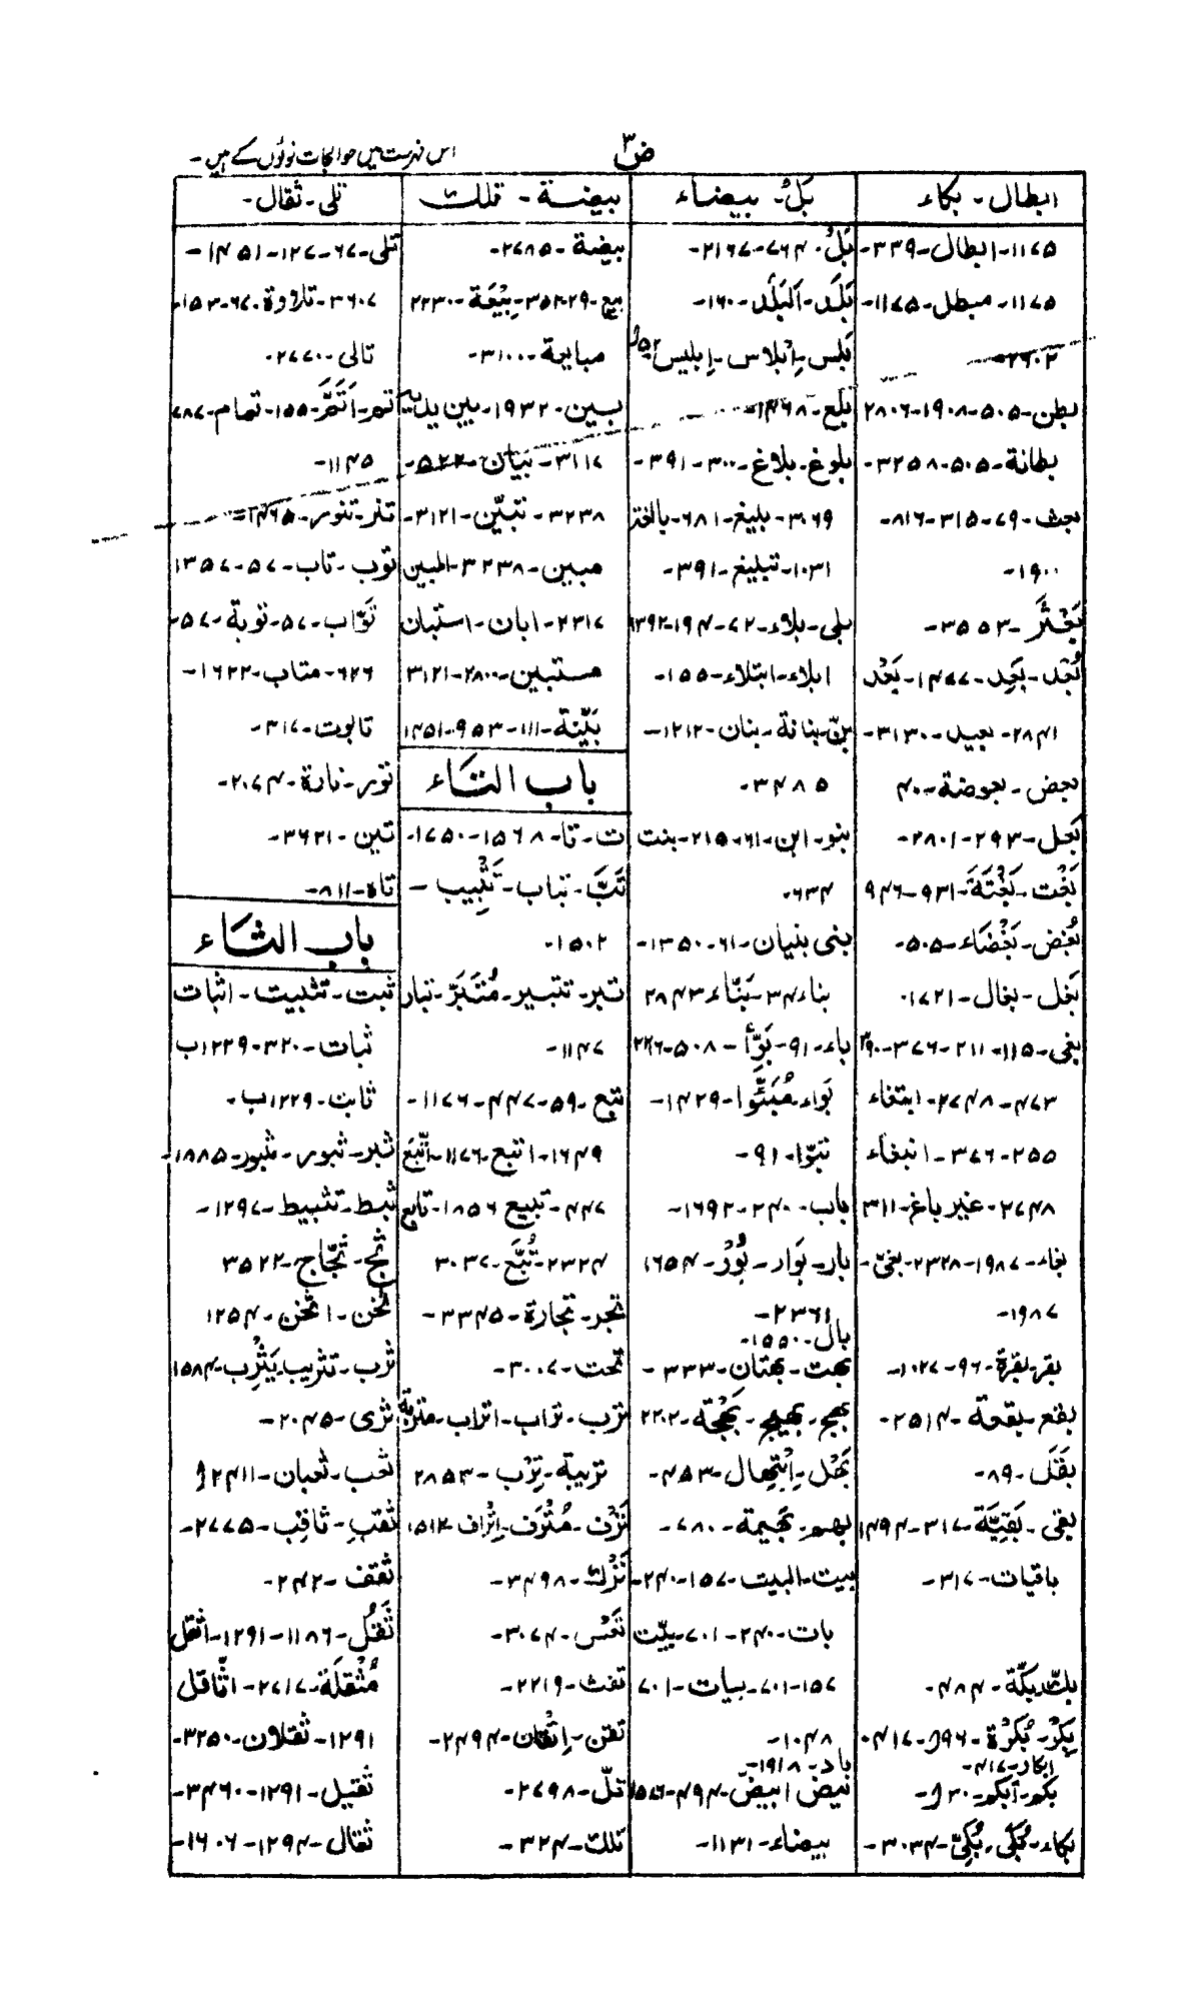 ض۳
اس فہرست میں حوالجات نوٹوں کے ہیں۔
ابطال۔ بکاء
۱۱۷۵۔ ابطال۔ ۳۳۹۔
۱۱۷۵۔ مبطل۔ ۱۱۷۵۔
۲۶۰۲۔
بطن۔ ۵۰۵۔ ۱۹۰۸۔ ۲۸۰۶
بطانة۔ ۵۰۵۔ ۳۲۵۸۔
بعث۔ ۷۹۔ ۳۱۵۔ ۸۱۶۔
۱۹۰۰۔
بَعْثَرَ۔ ۳۵۵۳۔
بُعْد۔ بَعِد۔ ۱۴۷۷۔ بَعْد
۲۸۴۱۔ بعید۔ ۳۱۳۰۔
بعض۔ بعوضة۔ ۴۰
بعل۔ ۲۹۳۔ ۲۸۰۱۔
بَغْت۔ بَغْتَةً۔ ۹۳۱۔ ۹۴۶
بُغْض۔ بَغْضَاء۔ ۵۰۵۔
بَغل۔ بغال۔ ۱۷۲۱۔
بغی۔ ۱۱۵۔ ۲۱۱۔ ۳۷۶۔
۴۷۳۔ ۲۷۴۸۔ ابتغاء
۲۵۵۔ ۳۷۶۔ انبغاء
۲۷۴۸۔ غیر باغ۔ ۳۱۱
بغاء۔ ۱۹۸۷۔ ۲۳۲۸۔ بغیّ۔
۱۹۸۷۔
بقر۔ بقرة۔ ۹۶۔ ۱۰۲۷۔
بقع۔ بقعة۔ ۲۵۱۴۔
بَقَلَ۔ ۸۹۔
بقی۔ بَقِيَّة۔ ۳۱۷۔ ۱۴۹۴
باقیات۔ ۳۱۷۔
بکّ۔ بکّة۔ ۴۸۴۔
بَکَر۔ بُکْرَة۔
ابکار۔ ۴۱۷۔
بکم۔ ابکم۔
بکاء۔ بُکٰی۔ بُکِیّ۔ ۳۰۳۴۔
بَلْ۔ بیضاء
بَلْ۔ ۷۶۴۔ ۲۱۶۷۔
بَلَد۔ اَلبَلَد۔ ۱۶۰۔
بَلَس۔ اِبْلاس۔ اِبلیس
بلع۔ ۱۴۶۸۔
بلوغ۔ بلاغ۔ ۳۰۰۔ ۳۹۱۔
۳۰۶۹۔ بلیغ۔ ۶۸۱۔
۱۰۳۱۔ تبلیغ۔ ۳۹۱۔
بلی۔ بلاء۔ ۷۲۔ ۱۹۴۔
ابلاء۔ ابتلاء۔ ۱۵۵۔
بنّ۔ بنانة۔ بنان۔ ۱۲۱۲۔
۳۴۸۵۔
بنو۔ ابن۔ ۶۱۔ ۲۱۵۔ بنت
۶۳۴۔
بنی بنیان۔ ۶۱۔ ۱۳۵۰۔
بناء۳۴۔ بَنّاء ۲۸۴۳
باء۔ ۹۱۔ بَوّأ۔ ۵۰۸۔
بَواء۔ مُبَوَّأ۔ ۱۴۲۹۔
تبوّا۔ ۹۱۔
باب۔ ۲۴۰۔ ۱۶۹۲۔
بار۔ بَوار۔ بُوْر۔ ۱۶۵۴
۲۳۶۱۔
بال۔ ۱۵۵۰۔
بھت۔ بھتان۔ ۳۳۳۔
بھج۔ بھیج۔ بَهْجَة۔ ۲۲۰۲
بَهْل۔ اِبْتِهال۔ ۴۵۳۔
بهم۔ بَهیمة۔ ۷۸۰۔
بیت۔ البیت۔ ۱۵۷۔ ۲۴۰۔
بات۔ ۲۴۰۔ ۷۰۱۔ بیّت
۱۵۷۔ ۷۰۱۔ بیات۔ ۷۰۱
۱۰۴۸۔
باد۔ ۱۹۱۸۔
بیض ابیض۔ ۴۹۴۔
بیضاء۔ ۱۱۳۱۔
بیضة۔ تلک
بیضة۔ ۲۷۸۵۔
بیع۔ ۲۹۔ ۳۵۲۔ بِیْعَة۔ ۲۲۳۰
مبایعة۔ ۳۱۰۰۔
بین۔ ۱۹۳۲۔ بین ید
۳۱۱۷۔ بَیان۔ ۵۲۲۔
۳۲۳۸۔ تبیّن۔ ۳۱۲۱۔
مبین۔ ۳۲۳۸۔ المبین
۲۳۱۷۔ ابان۔ استبان
مستبین۔ ۲۸۰۰۔ ۳۱۲۱
بَیِّنة۔ ۱۱۱۔ ۹۵۳۔ ۱۴۵۱
باب التاء
ت۔ تا۔ ۱۵۶۸۔ ۱۷۵۰۔
تَبَّ۔ تباب۔ تَتْبِیب۔
۱۵۰۲۔
تبر۔ تتبیر۔ مُتَبَّر۔ تبار
۱۱۴۷۔
تبع۔ ۵۹۔ ۴۴۷۔ ۱۱۷۶۔
۱۶۴۹۔ اتبع۔ ۱۱۷۶۔ اتَّبَع
۴۴۷۔ تبیع ۱۸۵۶۔ تابع
۲۳۲۴۔ تُبَّع۔ ۳۰۳۷۔
تجر۔ تجارة۔ ۳۳۴۵۔
تحت۔ ۳۰۰۷۔
ترب۔ تراب۔ اتراب۔ متربة
تریبة۔ تِرْب۔ ۲۸۵۳
تَرَف۔ مُتْرَف۔ اِتْراف۔ ۱۵۱۲
تَرْک۔ ۳۴۹۸۔
تَعَس۔ ۳۰۷۴۔
تفث۔ ۲۲۱۹۔
تقن۔ اِتقان۔ ۲۴۹۴۔
تلّ۔ ۲۷۹۸۔
تلک۔ ۳۲۴۔
تلی۔ ثقال۔
تلی۔ ۶۷۔ ۱۲۷۔ ۱۴۵۱۔
۳۶۰۷۔ تلاوة۔ ۶۷۔ ۱۵۳۔
تالی۔ ۲۷۷۰۔
تم۔ اَتَمَّ۔ ۱۵۵۔ تمام۔ ۷۸۷۔
۱۱۴۵۔
تنر۔ تنور۔ ۱۴۶۵۔
توب۔ تاب۔ ۵۷۔ ۱۳۵۷
توّاب۔ ۵۷۔ توبة۔
۶۲۶۔ متاب۔ ۱۶۲۲۔
تابوت۔ ۳۱۷۔
تور۔ تارة۔ ۲۰۷۴۔
تین۔ ۳۶۲۱۔
تاه۔ ۸۱۱۔
باب الثاء
ثبت۔ تثبیت۔ اثبات
ثبات۔ ۳۲۰۔ ۱۲۲۹ب
ثابت۔ ۱۲۲۹ب۔
ثبر۔ ثبور۔ مثبور۔ ۱۸۸۵۔
ثبط۔ تثبیط۔ ۱۲۹۷۔
ثجّ۔ ثجّاج۔ ۳۵۲۲
ثخن۔ اثخن۔ ۱۲۵۴
ثرب۔ تثریب۔ یَثْرِب۔ ۱۵۸۴
ثری۔ ۲۰۴۵۔
ثعب۔ ثعبان۔
ثقب۔ ثاقب۔ ۲۷۷۵۔
ثقف۔ ۲۴۲۔
ثَقُل۔ ۱۱۸۶۔ ۱۲۹۱۔ اثقل
مُثْقَلة۔ ۲۷۱۷۔ اثّاقل
۱۲۹۱۔ ثقلان۔ ۳۲۵۰۔
ثقیل۔ ۱۲۹۱۔ ۳۴۶۰۔
ثقال۔ ۱۲۹۴۔ ۱۶۰۶۔